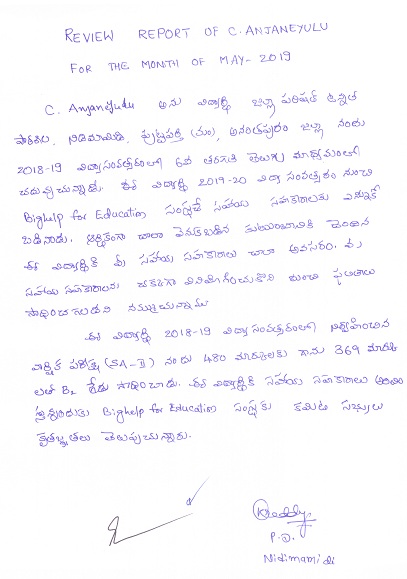 REVIEW REPORT OF C. ANJANEYULU
FOR THE MONTH OF MAY- 2019
C. Anjaneyulu అను విద్యార్థి జిల్లా పరిషత్ ఉన్నత
పాఠశాల, నిడిమామిడి, పుట్టపర్తి (మం), అనంతపురం జిల్లా నందు
2018-19 విద్యాసంవత్సరంలో 6వ తరగతి తెలుగు మాధ్యమంలో
చదువుచున్నాడు. ఈ విద్యార్థి 2019-20 విద్యా సంవత్సరం నుంచి
Bighelp for Education సంస్థచే సహాయ సహకారాలకు ఎన్నుకో
బడినాడు. ఆర్థికంగా చాలా వెనుకబడిన కుటుంబానికి చెందిన
ఈ విద్యార్థికి మీ సహాయ సహకారాలు చాలా అవసరం. మీ
సహాయ సహకారాలను చక్కగా వినియోగించుకొని మంచి ఫలితాలు
సాధించగలడని నమ్ముచున్నాము
ఈ విద్యార్థి 2018-19 విద్యాసంవత్సరంలో నిర్వహించిన
వార్షిక పరీక్ష (SA-II) నందు 480 మార్కులకు గాను 369 మార్కు
లతో B₂ గ్రేడు సాధించాడు. ఈ విద్యార్థికి సహాయ సహకారాలు అంది
స్తున్నందుకు Bighelp for Education సంస్థకు కమిటి సభ్యులు
కృతజ్ఞతలు తెలుపుచున్నారు.
P.D.
Nidimamidi